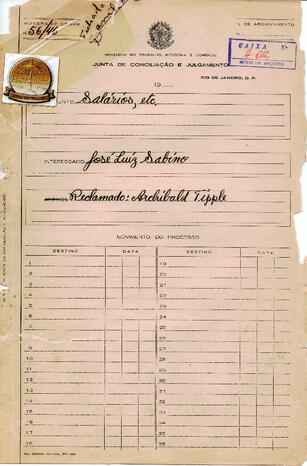 NÚMERO DE ORDEM
Nº DE ARQUIVAMENTO
N. 56/46
MINISTÉRIO DO TRABALHO, INDÚSTRIA E COMÉRCIO
CAIXA Nº
JUNTA DE CONCILIAÇÃO E JULGAMENTO
RIO DE JANEIRO, D. F.
19
ASSUNTO Salários, etc.
INTERESSADO José Luiz Sabino
Reclamado: Archibald Tipple
MOVIMENTO DO PROCESSO
DESTINO DATA DESTINO DATA
1 19
2 20
3 21
4 22
5 23
6 24
7 25
8 26
9 27
10 28
11 29
12 30
13 31
14 32
15 33
16 34
17 35
18 36